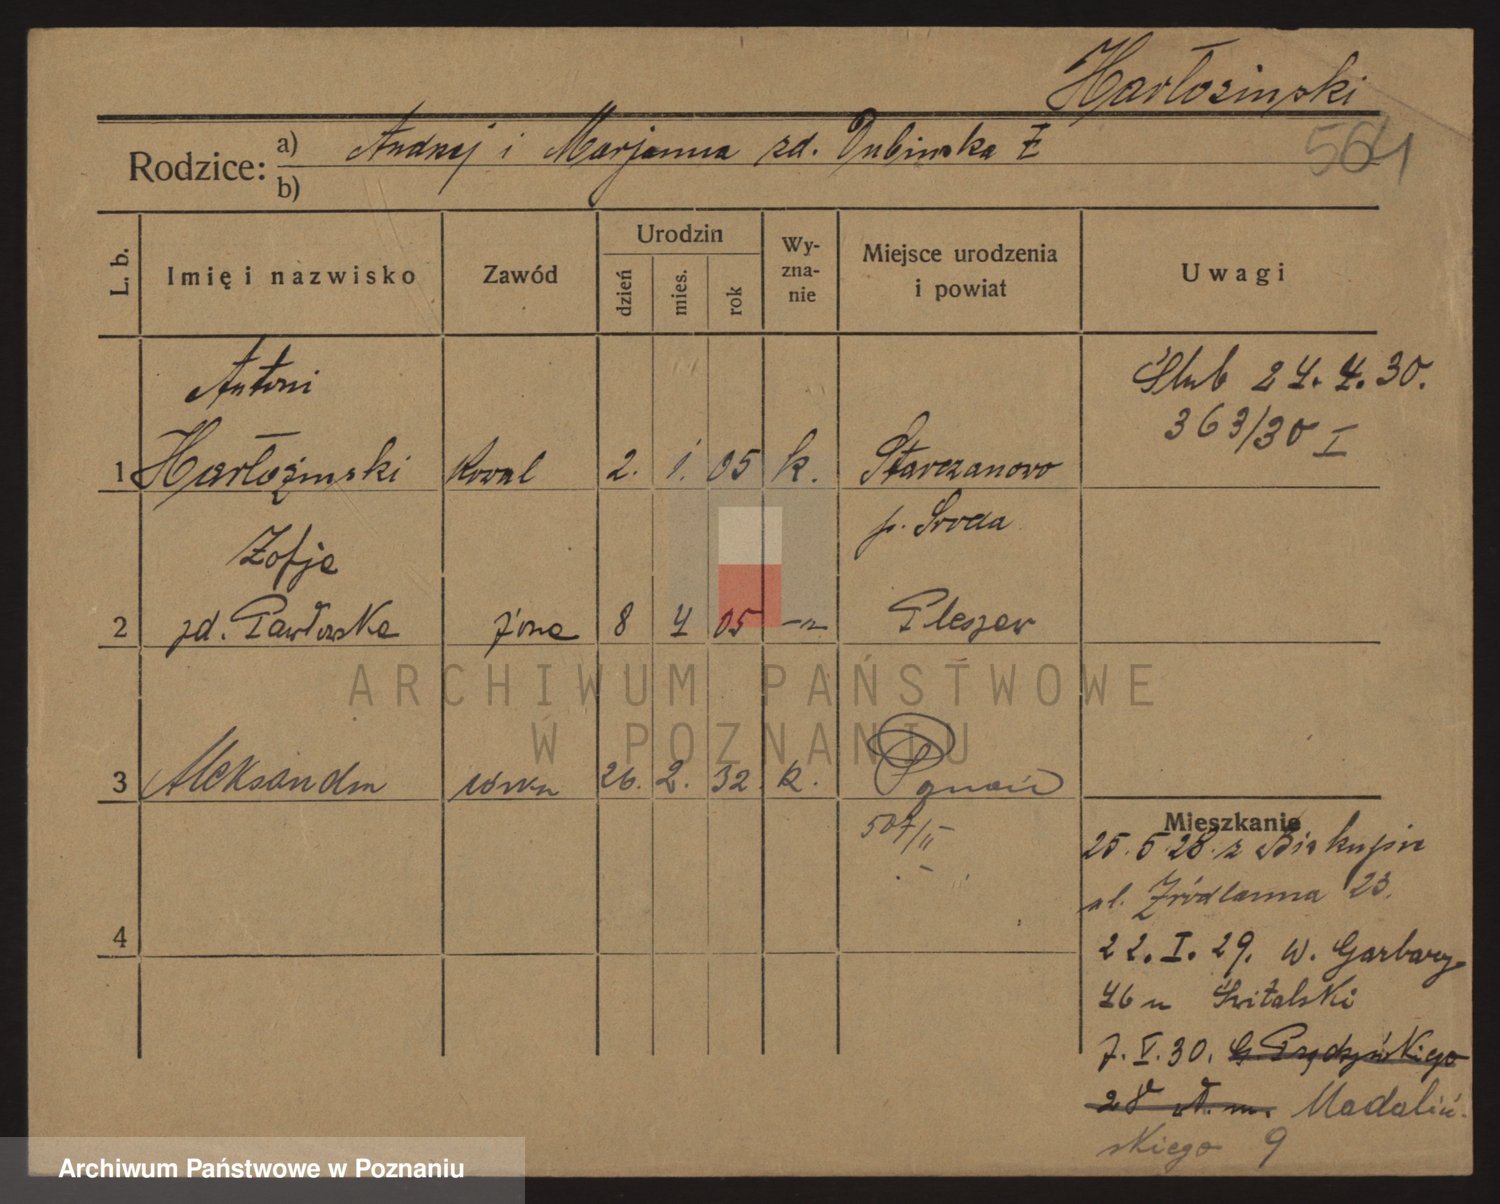 Harłoziński
564
Rodzice: a) Andrzej i Marjanna zd. Dubinska
b)
L. b.
Imię i nazwisko
Zawód
Urodzin
dzień
mies.
rok
Wy-
zna-
nie
Miejsce urodzenia
i powiat
Uwagi
Antoni
1 Harłoziński Kowal 2. 1. 05 k. Starczanowo
p. Sroda
Ślub 24. 4. 30.
363/30 I
Zofja
2 zd. Pawłowska żona 8 4 05 -"- Pleszew
3 Aleksandra córka 26. 2. 32 k. Poznań
507/II
4
Mieszkanie
25. 5. 28. z Biskupin
ul. Źródlanna 23.
22. I. 29. w. Garbary
46 u Świtalski
7. V. 30. G. Prądzyńskiego
28 Madaliń-
skiego 9
ARCHIWUM PAŃSTWOWE
W POZNANIU
Archiwum Państwowe w Poznaniu